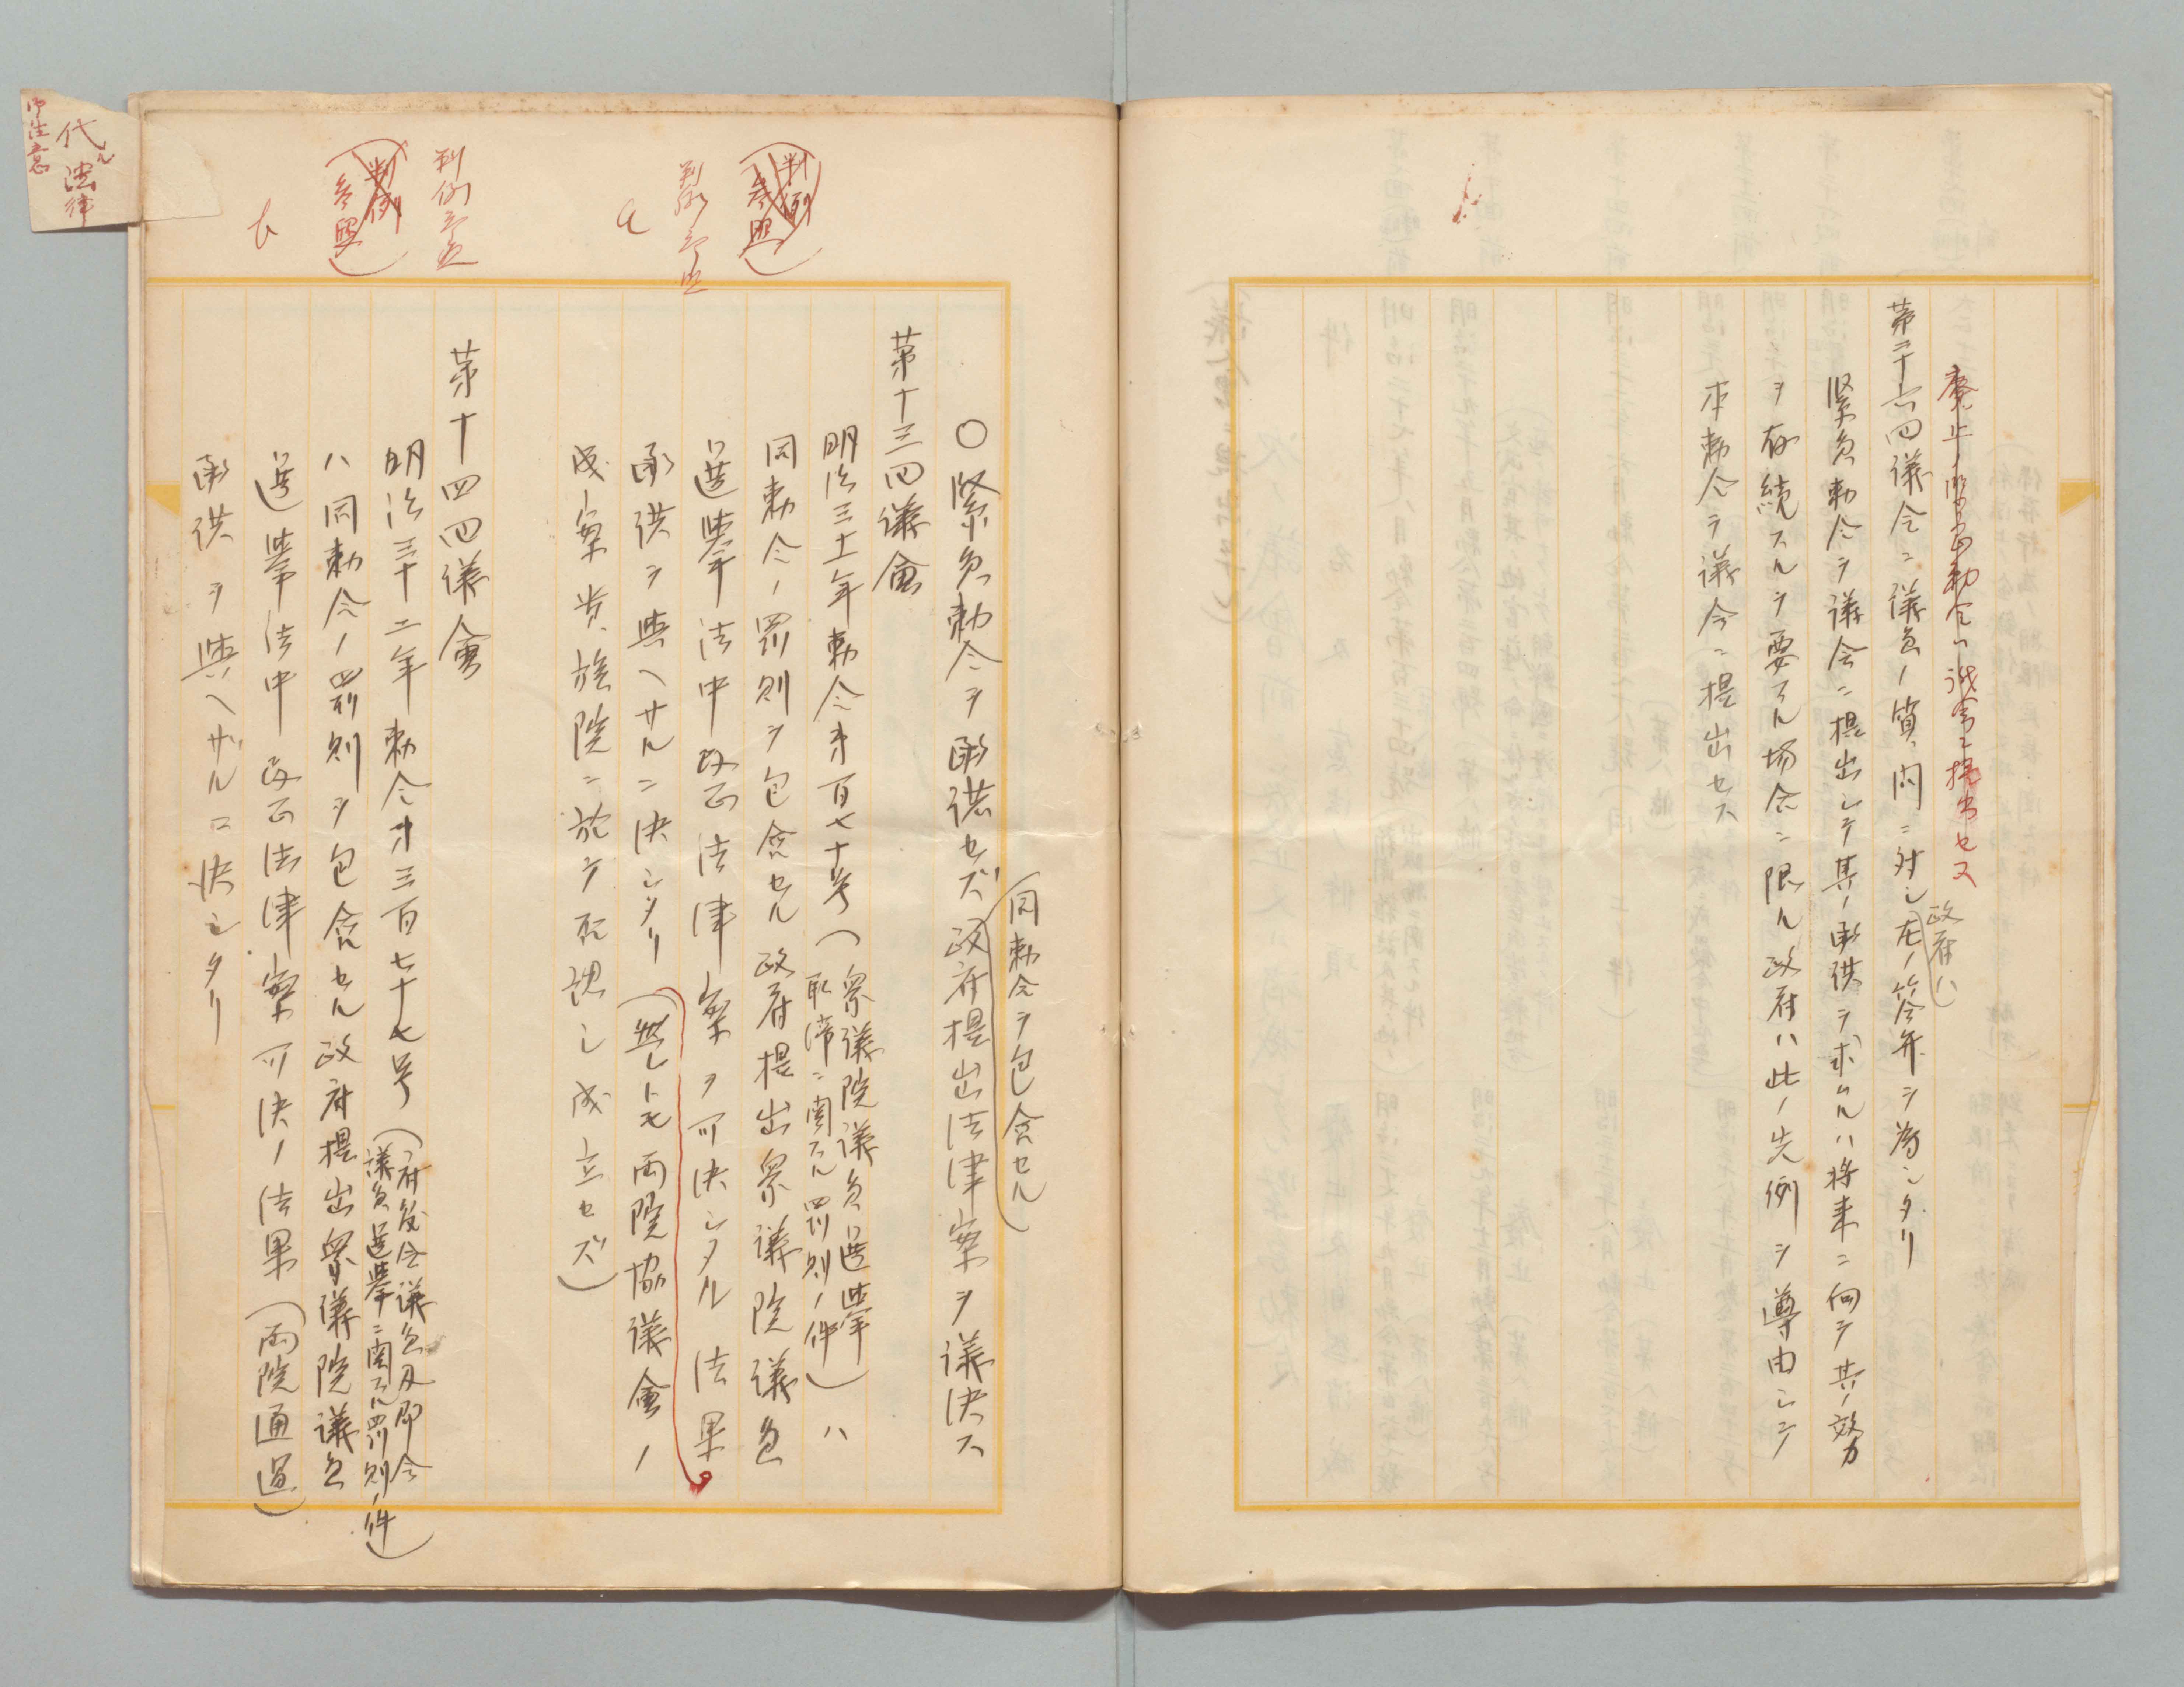 廃止ノ緊急勅令ハ議会ニ提出セス
第二十六回議会ニ議員ノ質問ニ対シ左ノ答弁ヲ為シタリ
政府ハ
緊急勅令ヲ議会ニ提出シテ其ノ承諾ヲ求ムルハ将来ニ向テ其ノ效力
ヲ存続スルヲ要スル場合ニ限ル政府ハ此ノ先例ヲ遵由シテ
本勅令ヲ議会ニ提出セス
(同勅令ヲ包含セル)
〇緊急勅令ヲ承諾セズ政府提出法律案ヲ議決ス
第十三回議會
明治三十一年勅令第百七十号(衆議院議員選挙
取締ニ関スル罰則ノ件)ハ
同勅令ノ罰則ヲ包含セル政府提出衆議院議員
選挙法中改正法律案ヲ可決シタル法果
承諾ヲ与ヘサルニ決シタリ(無シトモ両院協議會ノ
成案貴族院ニ於テ否認シ成立セズ)
第十四回議會
明治三十二年勅令第三百七十七号(府縣会議員及郡会
議員選挙ニ関スル罰則ノ件)
ハ同勅令ノ罰則ヲ包含セル政府提出衆議院議員
選挙法中改正法律案可決ノ法果(両院通過)
承諾ヲ與ヘザルニ決シタリ
(判例参照)
判例
(判例参照)
判例
代ル法律
御注意